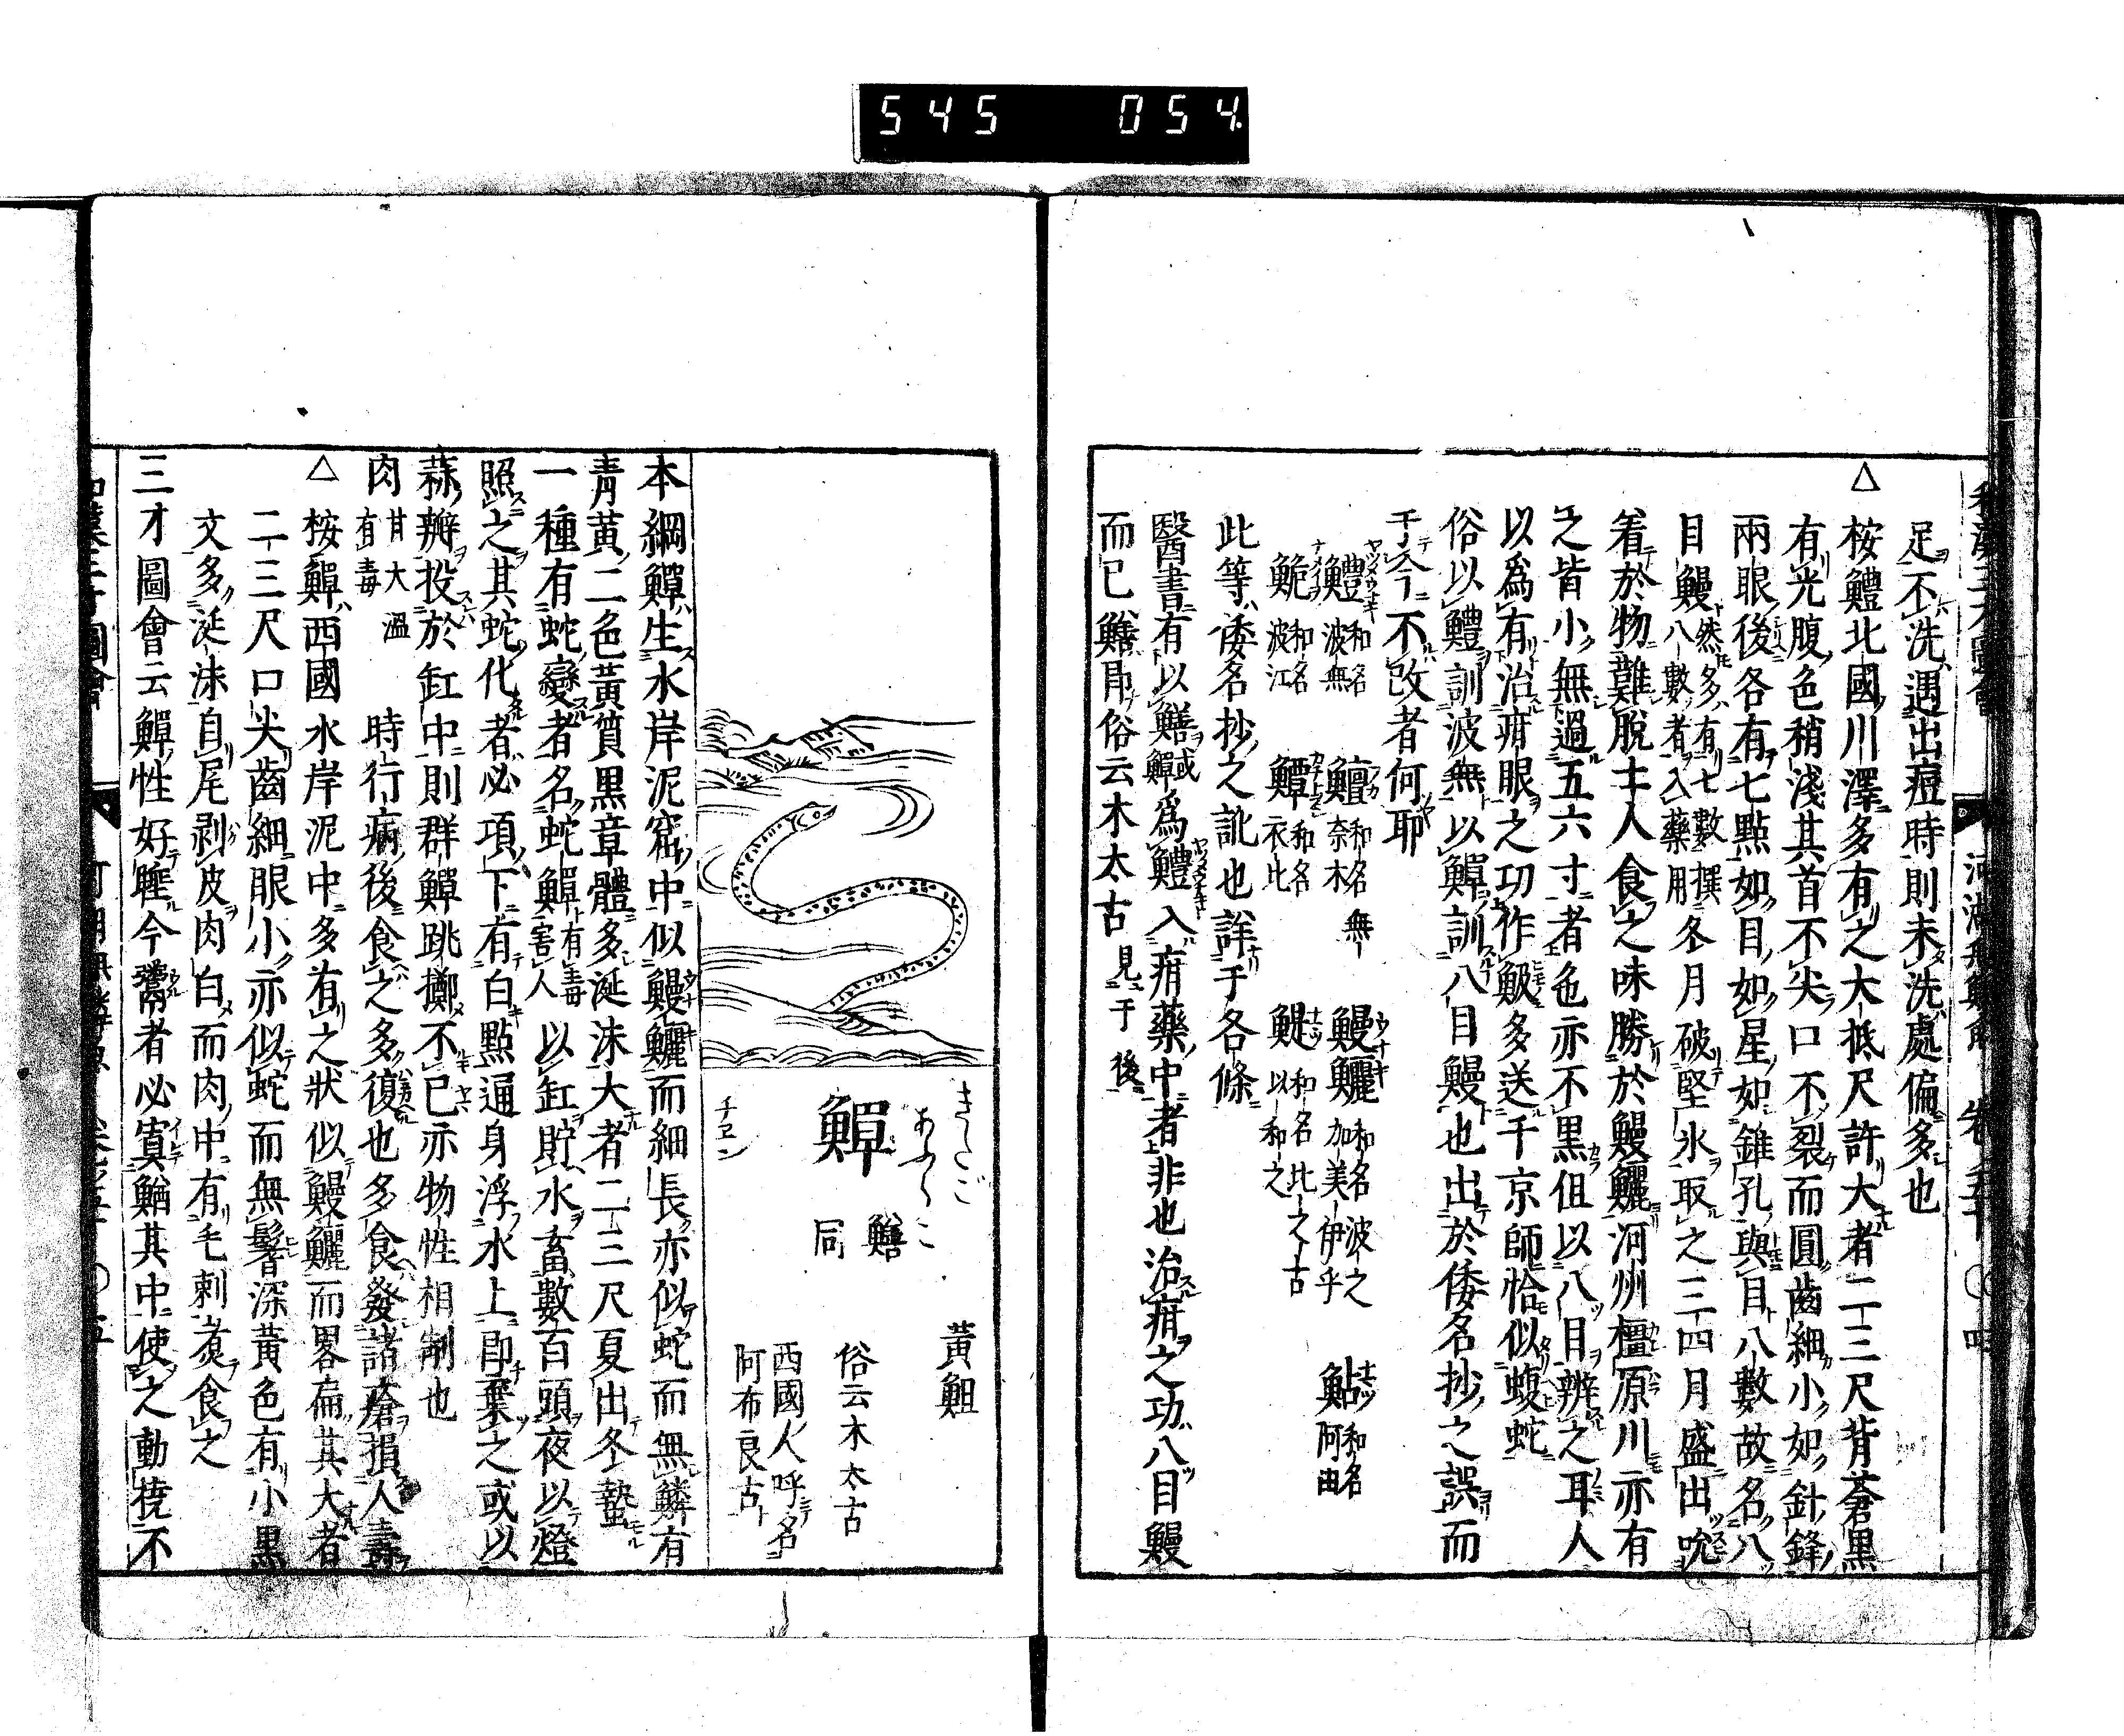 545 054
足不洗遇出痘時則未洗處偏多也
△桉鱧北國川澤多有之大抵尺許大者二三尺背蒼黒
有光腹色稍淺其首不尖口不裂而圓齒細小如針鋒
兩眼後各有七點如目如星如錐孔與目八數故名八
目鰻 然多有七數撰八數者入藥用 冬月破堅氷取之三四月盛出吮
着於物難脱土人食之味勝於鰻鱺河州橿原川亦有
之皆小無過五六寸者色亦不黒但以八目辨之耳人
以爲有治疳眼之功作鮁多送于京師恰似蝮蛇
俗以鱧訓波無以鱓訓八目鰻也出於倭名抄之誤而
于今不改者何耶
鱧 和名波無 鱣 和名無奈木 鰻鱺 和名波之加美伊乎 鮎 和名阿由
鮠 和名波江 鱏 和名衣比 鯷 和名比之古以和之
此等倭名抄之訛也詳于各條
醫書有以鱔 或鱓 爲鱧入疳藥中者非也治疳之功八目鰻
而已鱔帍俗云木太古 見于後
きだご
あぶらこ
鱓
チヱン
鱔同
黃䱉
俗云木太古
西國人呼名
阿布良古
本綱鱓生水岸泥窟中似鰻鱺而細長亦似蛇而無鱗有
青黄二色黃質黒章體多涎沫大者二三尺夏出冬蟄
一種有蛇變者名蛇鱓 有毒害人 以缸貯水畜數百頭夜以燈
照之其蛇化者必項下有白點通身浮水上卽棄之或以
蒜瓣投於缸中則群鱓跳擲不已亦物性相制也
肉 甘大溫有毒 時行病後食之多復也多食發諸瘡損人壽
△桉鱓西國水岸泥中多有之狀似鰻鱺而畧扁其大者
二三尺口尖齒細眼小亦似蛇而無髻深黃色有小黒
文多涎沫自尾剥皮肉白而肉中有毛刺煑食之
三才圖會云鱓性好睡今鬻者必寘鰌其中使之動撓不